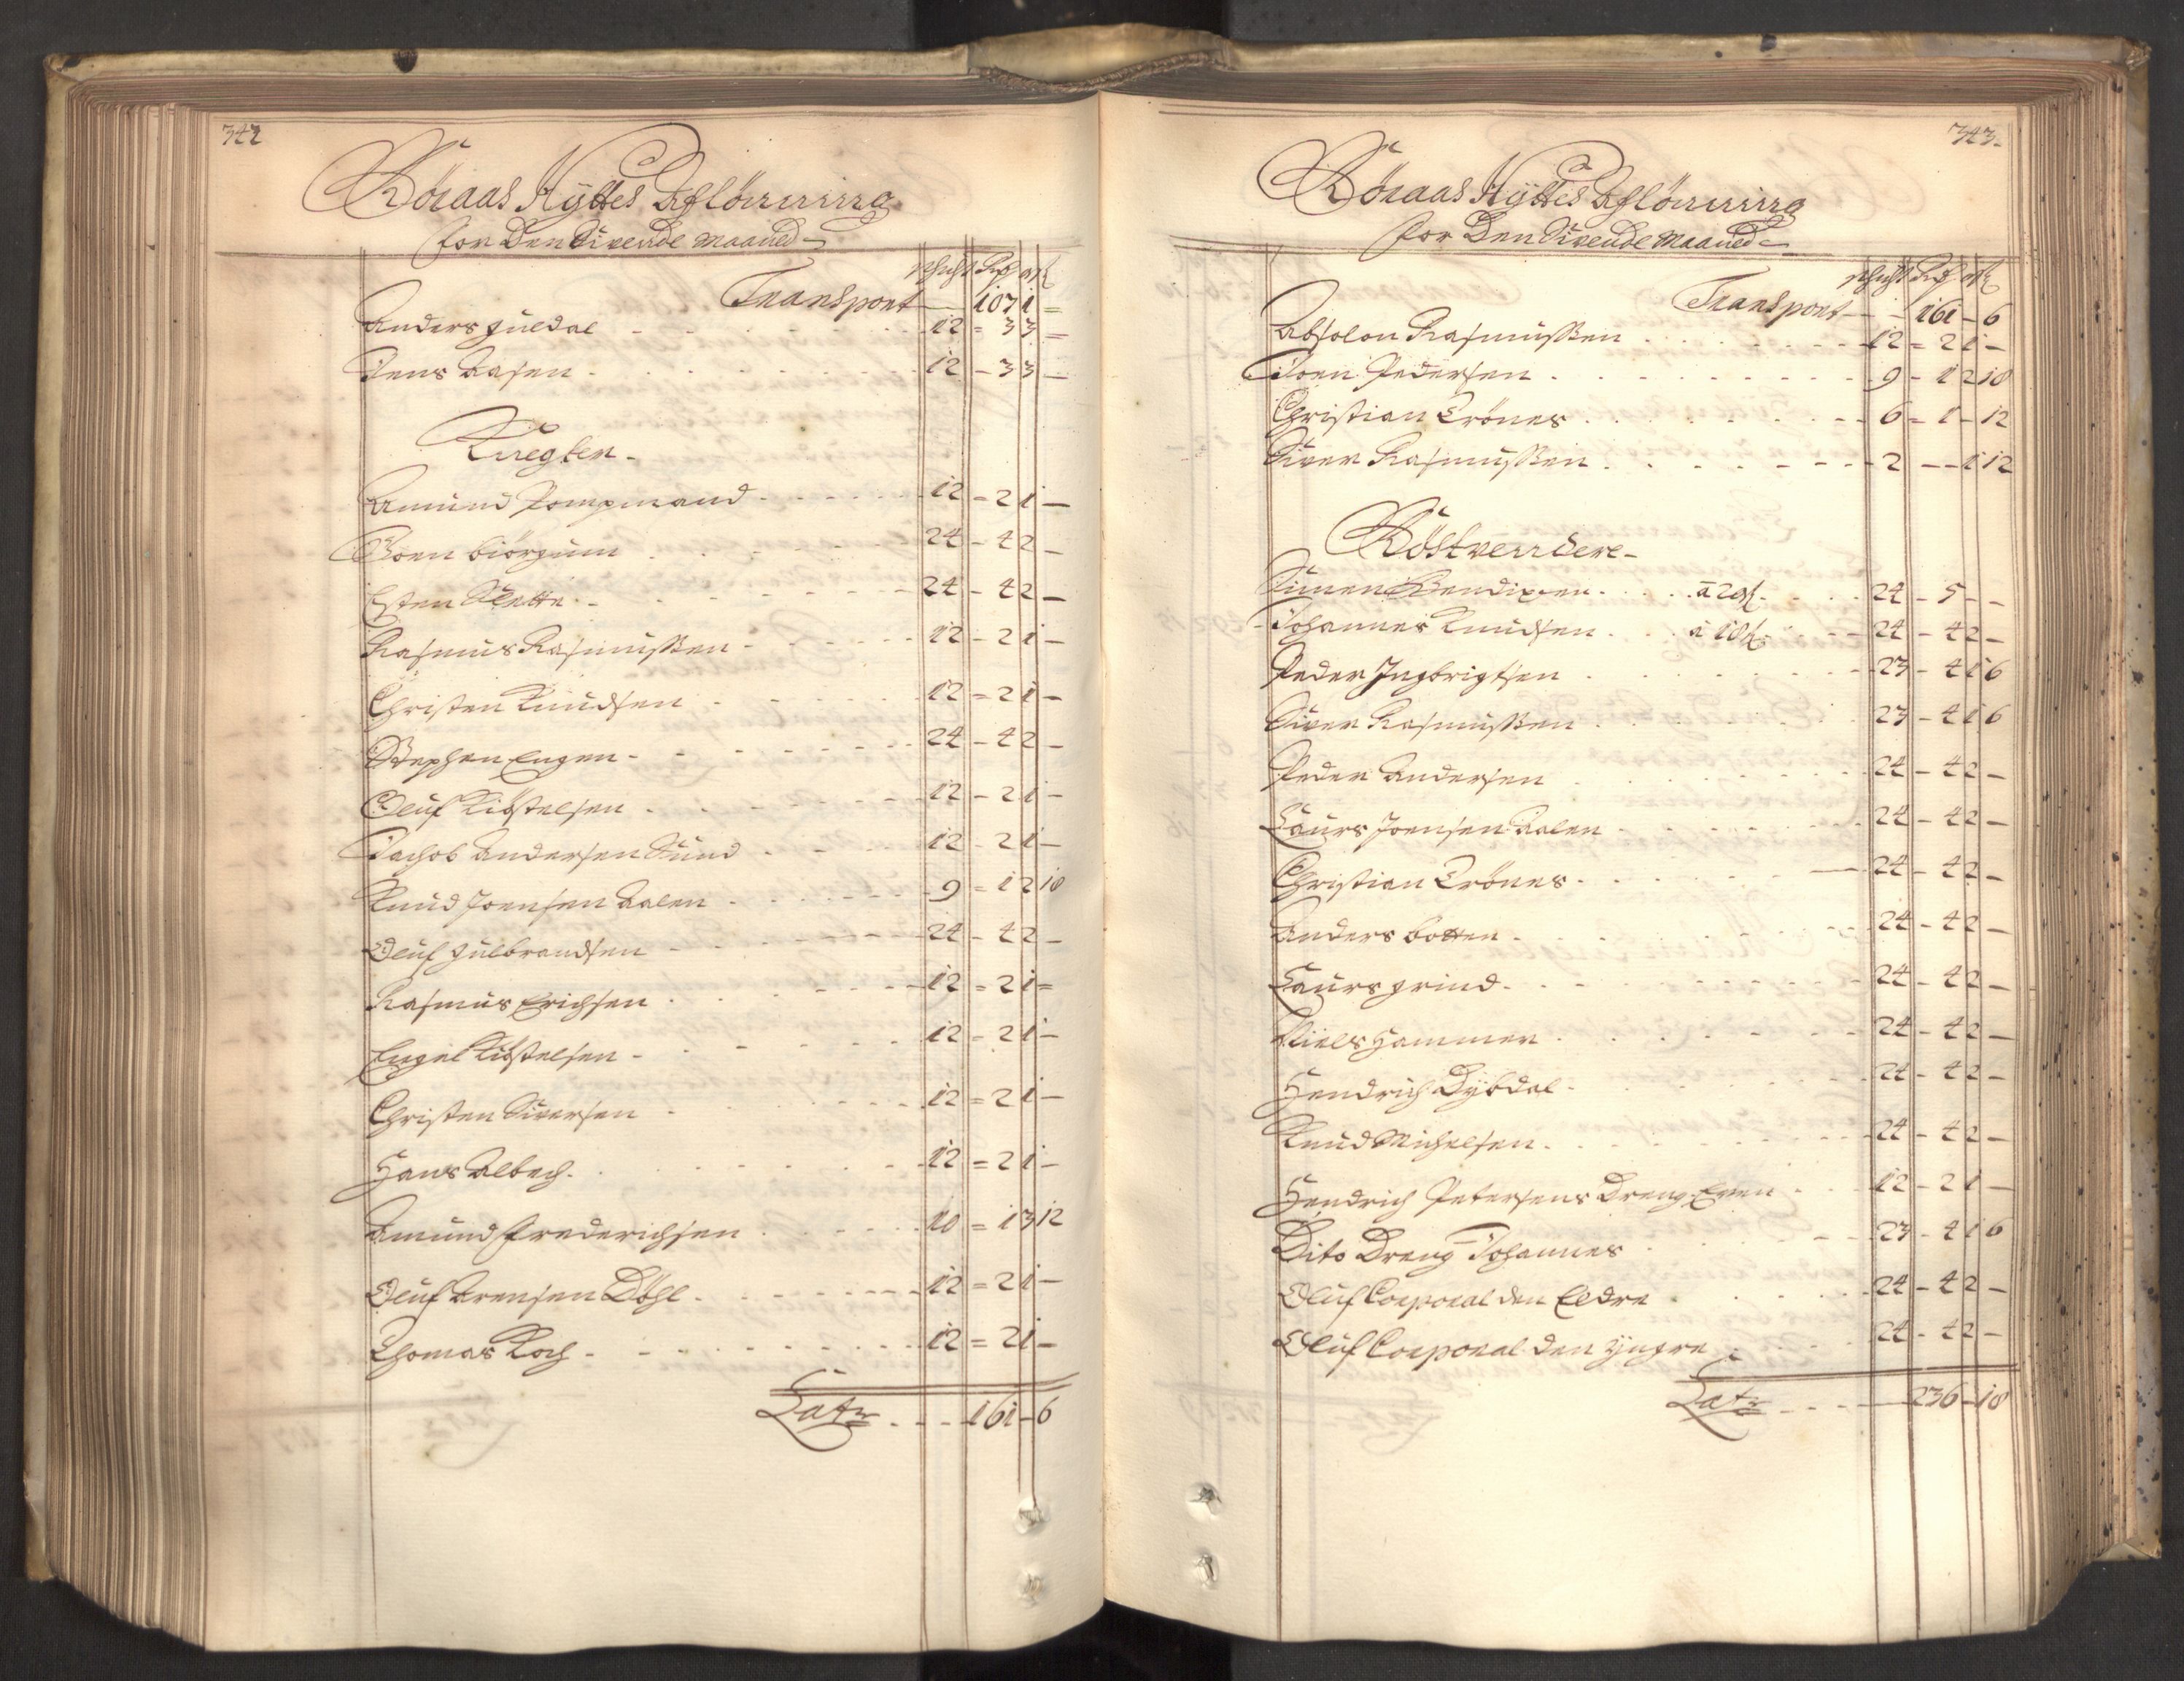 342
Röraas Hyttes Aflönning
for Den Sivende Maaned
schicht Rdr ort ß
Transport - 107 1 =
Anders Guldal - 12 = 3 3 =
Jens Aasen - 12 - 3 3 -
Knegter -
Amund Pompmand - 12 = 2 1 -
Joen Biörgum - 24 - 4 2 -
Esten Slette - 24 - 4 2 -
Rasmus Rasmussen - 12 - 2 1 -
Christen Knudsen - 12 = 2 1 -
Stephen Engen - 24 - 4 2 -
Oluf Kiöstelsen - 12 - 2 1 -
Jachob Andersen Sund - 12 - 2 1 -
Knud Joensen Aalen - 9 = 1 2 18
Oluf Gulbrandsen - 24 - 4 2 -
Rasmus Erichsen - 12 = 2 1 =
Engel Kiöstelsen - 12 = 2 1 -
Christen Siversen - 12 = 2 1 -
Hans Albech - 12 = 2 1 -
Amund Frederichsen - 10 = 1 3 12
Oluf Arensen Döhl - 12 = 2 1 -
Thomas Koch - 12 = 2 1 -
Latr - 161 - 6
343
Röraas Hyttes Aflönning
for Den Sivende Maaned
schicht Rdr ort ß
Transport - 161 - 6
Absolon Rasmussen - 12 = 2 1 -
Joen Pedersen - 9 - 1 2 18
Christian Trönes - 6 = 1 - 12
Siver Rasmussen - 2 - - 1 12
Röstvendere -
Simen Bendixen - a 20 ß - 24 - 5 - -
Johannes Knudsen - a 18 ß - 24 - 4 2 -
Peder Ingbrigtsen - 23 - 4 1 6
Siver Rasmussen - 23 - 4 1 6
Peder Andersen - 24 - 4 2 -
Laurs Joensen Aalen - 24 - 4 2 -
Christian Trönes - 24 - 4 2 -
Anders Botten - 24 - 4 2 -
Laurs Grind - 24 - 4 2 -
Niels Hammer - 24 - 4 2 -
Hendrich Dÿbdal - 24 - 4 2 -
Knud Michelsen - 24 - 4 2 -
Hendrich Petersens Dreng Even - 12 - 2 1 -
Dito Dreng Johannes - 23 - 4 1 6
Oluf Corporal den Eldre - 24 - 4 2 -
Oluf Corporal den Yngre - 24 - 4 2 -
Latr - 236 - 18